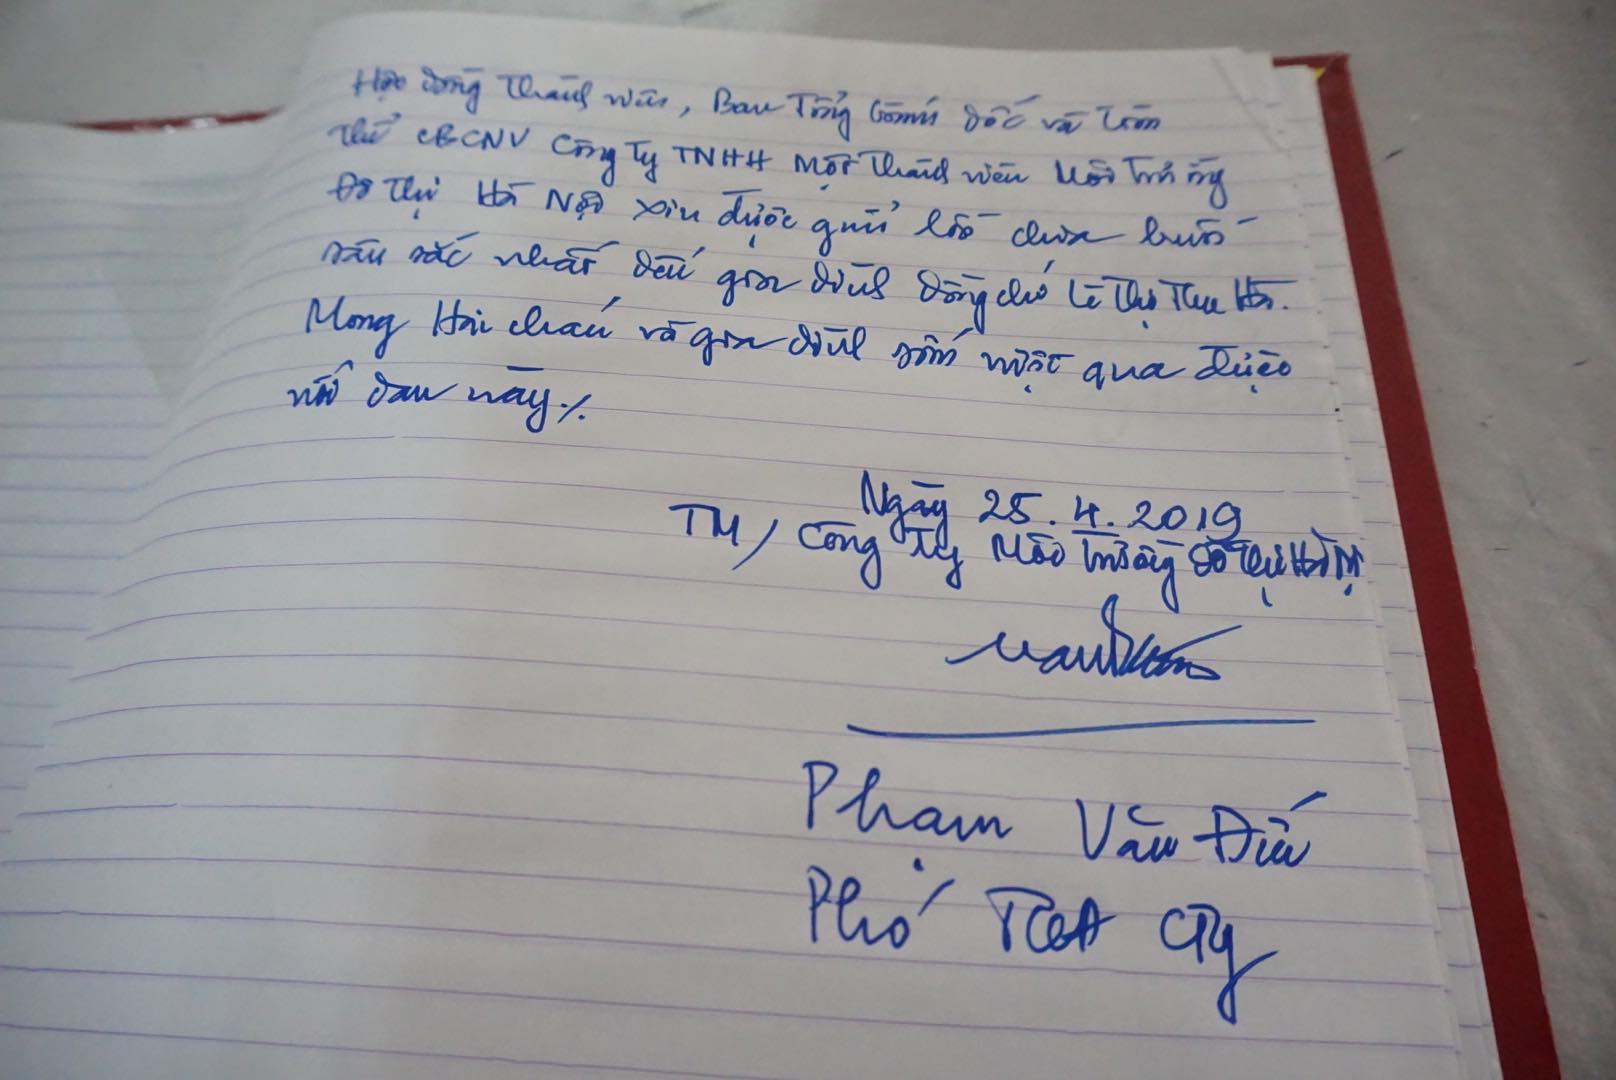 Hội đồng thành viên, Ban Tổng Giám đốc và toàn
thể CBCNV Công ty TNHH Một thành viên Môi trường
Đô thị Hà Nội xin được gửi lời chia buồn
sâu sắc nhất đến gia đình đồng chí Lê Thị Thu Hà.
Mong Hai cháu và gia đình sớm vượt qua được
nỗi đau này ./.
Ngày 25.4.2019
TM/ Công ty Môi trường Đô thị Hà Nội
Phạm Văn Đức
Phó TGĐ Cty